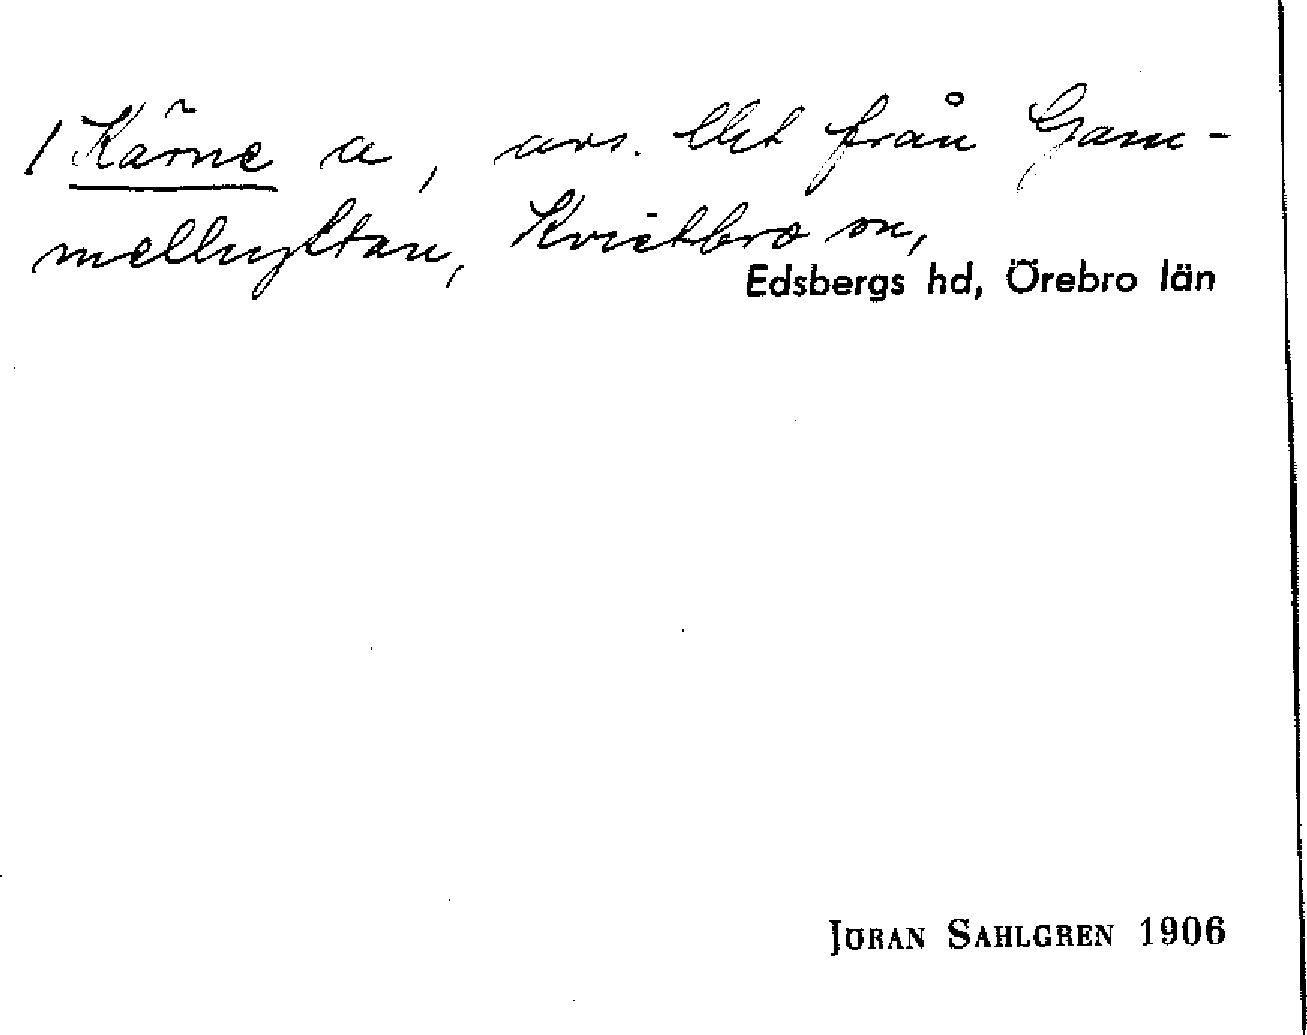 / Kärne a, avs. Ut från Gam-
melhyttan, Kvistbro sn,
Edsbergs hd, Örebro län
JÖRAN SAHLGREN 1906